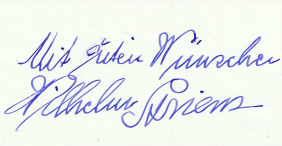 Mit guten Wünschen
Wilhelm